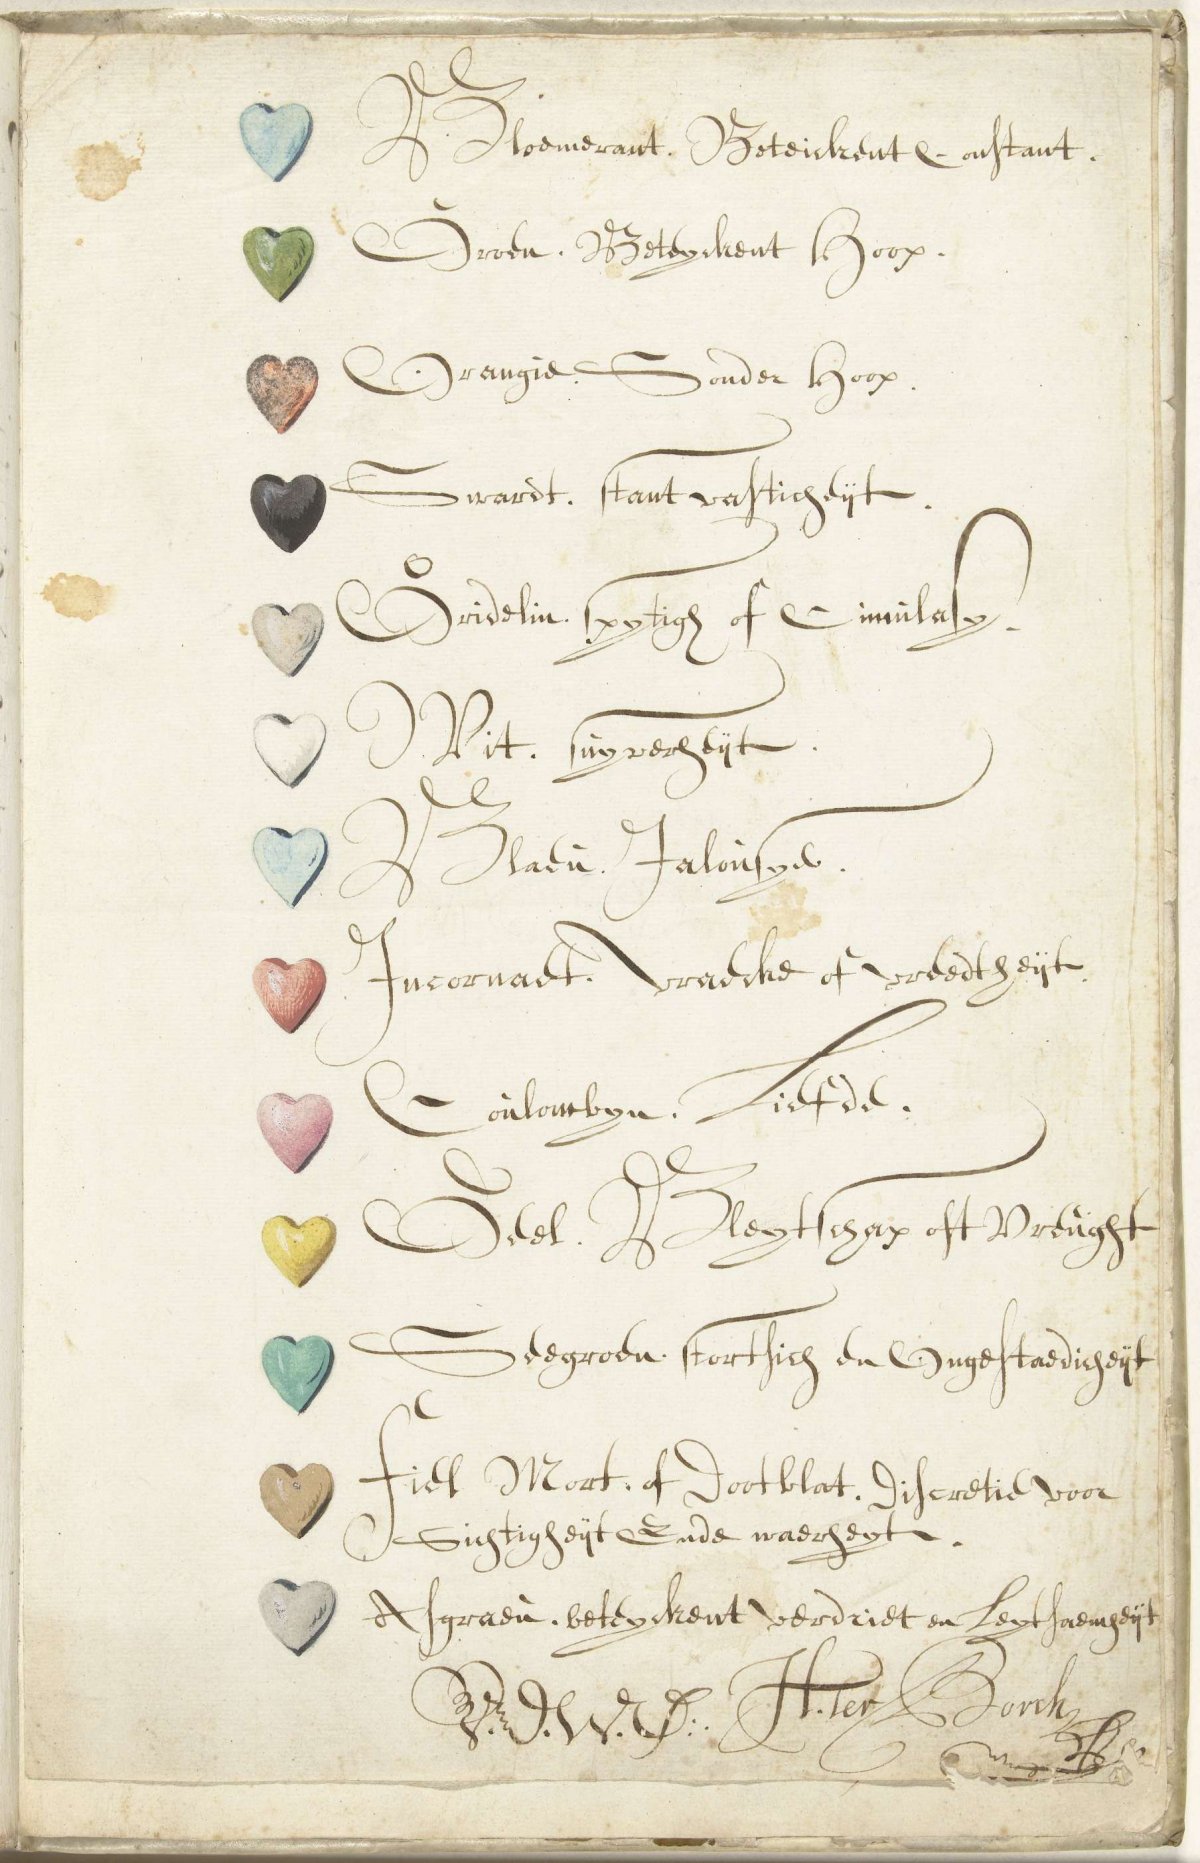 Bloemerant. Beteickent Constant.
Groen. Beteyckent Hoop.
Orangie. Sonder Hoop.
Swardt. stantvasticheijt.
Gridelin. spytigh of Cimulasy.
Wit. suyverheijt.
Blaeu. Jalousye.
Incornaet. Vraecke of wreedtheijt.
Coulombyn. Liefde.
Geel. Bleytschap oft Vreught
Seegroen. stortsich en Ongestaedicheijt
Fiel Mort. of Dootblat. Discretie voor
Sichtigheijt Ende waerheyt.
Asgraeu. beteyckent verdriet en Leytsaemheijt
H. Ter Borch